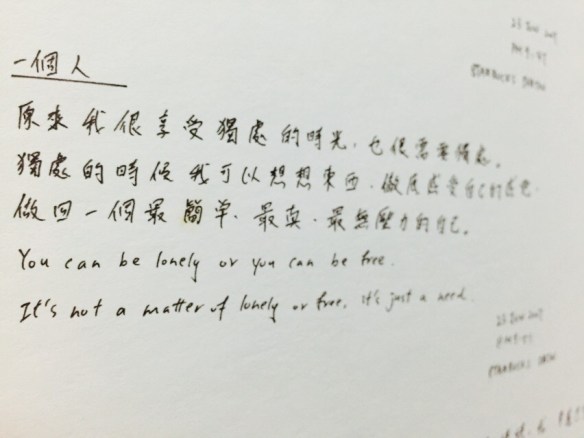 一個人
原來我很享受獨處的時光,也很需要獨處。
獨處的時候我可以想想東西,徹底感受自己的感也
做回一個最簡單、最真、最無壓力的自己。
You can be lonely or you can be free.
It's not a matter of lonely or free, it's just a need.
STARBUCKS